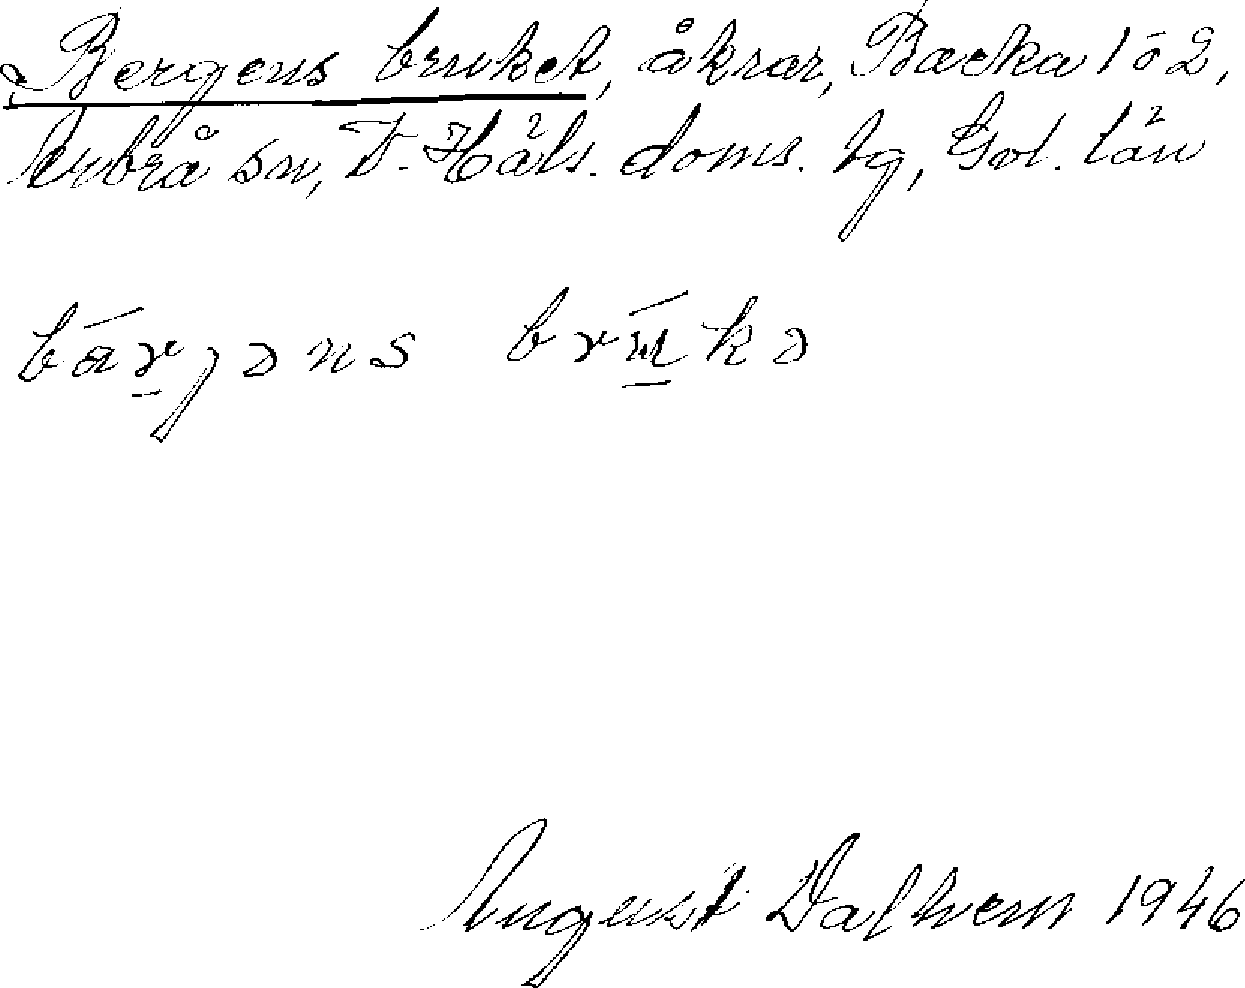 Bergens bruket, åkrar, Backa 1 o 2,
Arbrå sn, V. Häls. doms. tg, Gvl. län
bárjəns brúkə
August Dalhem 1946